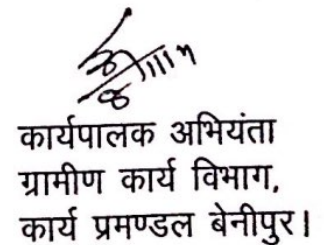 कार्यपालक अभियंता
ग्रामीण कार्य विभाग,
कार्य प्रमण्डल बेनीपुर।